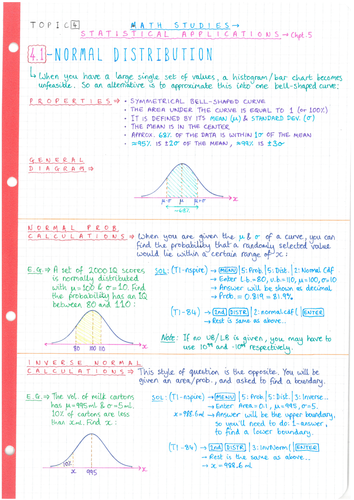 TOPIC 4
MATH STUDIES→
STATISTICAL APPLICATIONS→Chpt.5
4.1-NORMAL DISTRIBUTION
↳ When you have a large single set of values, a histogram/bar chart becomes
unfeasible. So an alternative is to approximate this into one bell-shaped curve:
PROPERTIES→ • SYMMETRICAL BELL-SHAPED CURVE
• THE AREA UNDER THE CURVE IS EQUAL TO 1 (or 100%)
• IT IS DEFINED BY ITS MEAN (μ) & STANDARD DEV. (σ)
• THE MEAN IS IN THE CENTER
• APPROX. 68% OF THE DATA IS WITHIN 1σ OF THE MEAN
• ≈95% IS ±2σ OF THE MEAN, ≈99% IS ±3σ
GENERAL
DIAGRAM→
μ-σ μ μ+σ x
≈68%
NORMAL PROB.
CALCULATIONS→ When you are given the μ & σ of a curve, you can
find the probability that a randomly selected value
would lie within a certain range of x:
E.G.→ A set of 2000 IQ scores
is normally distributed
with μ=100 & σ=10. Find
the probability has an IQ
between 80 and 110:
80 100 110 x
SOL: (TI-nspire) → MENU | 5: Prob. | 5: Dist. | 2: Normal CdF
→ Enter L.b.=80, u.b.=110, μ=100, σ=10
→ Answer will be shown as decimal
→ Prob. = 0.819 = 81.9%
(TI-84) → 2nd DISTR | 2: normalcdf( | ENTER
→ Rest is same as above...
Note: If no UB/LB is given, you may have to
use 10⁹⁹ and -10⁹⁹ respectively.
INVERSE NORMAL
CALCULATIONS→ This style of question is the opposite. You will be
given an area/prob., and asked to find a boundary.
E.G.→ The vol of milk cartons
has μ=995mL & σ=5mL.
10% of cartons are less
than xmL. Find x:
10%
x 995 x
SOL: (TI-nspire) → MENU | 5: Prob | 5: Dist | 3: Inverse...
→ Enter Area=0.1, μ=995, σ=5.
x=988.6mL → Answer will be the upper boundary,
so you'll need to do: 1-answer,
to find a lower boundary.
(TI-84) → 2nd DISTR | 3: InvNorm( | ENTER
→ Rest is the same as above...
→ x = 988.6mL